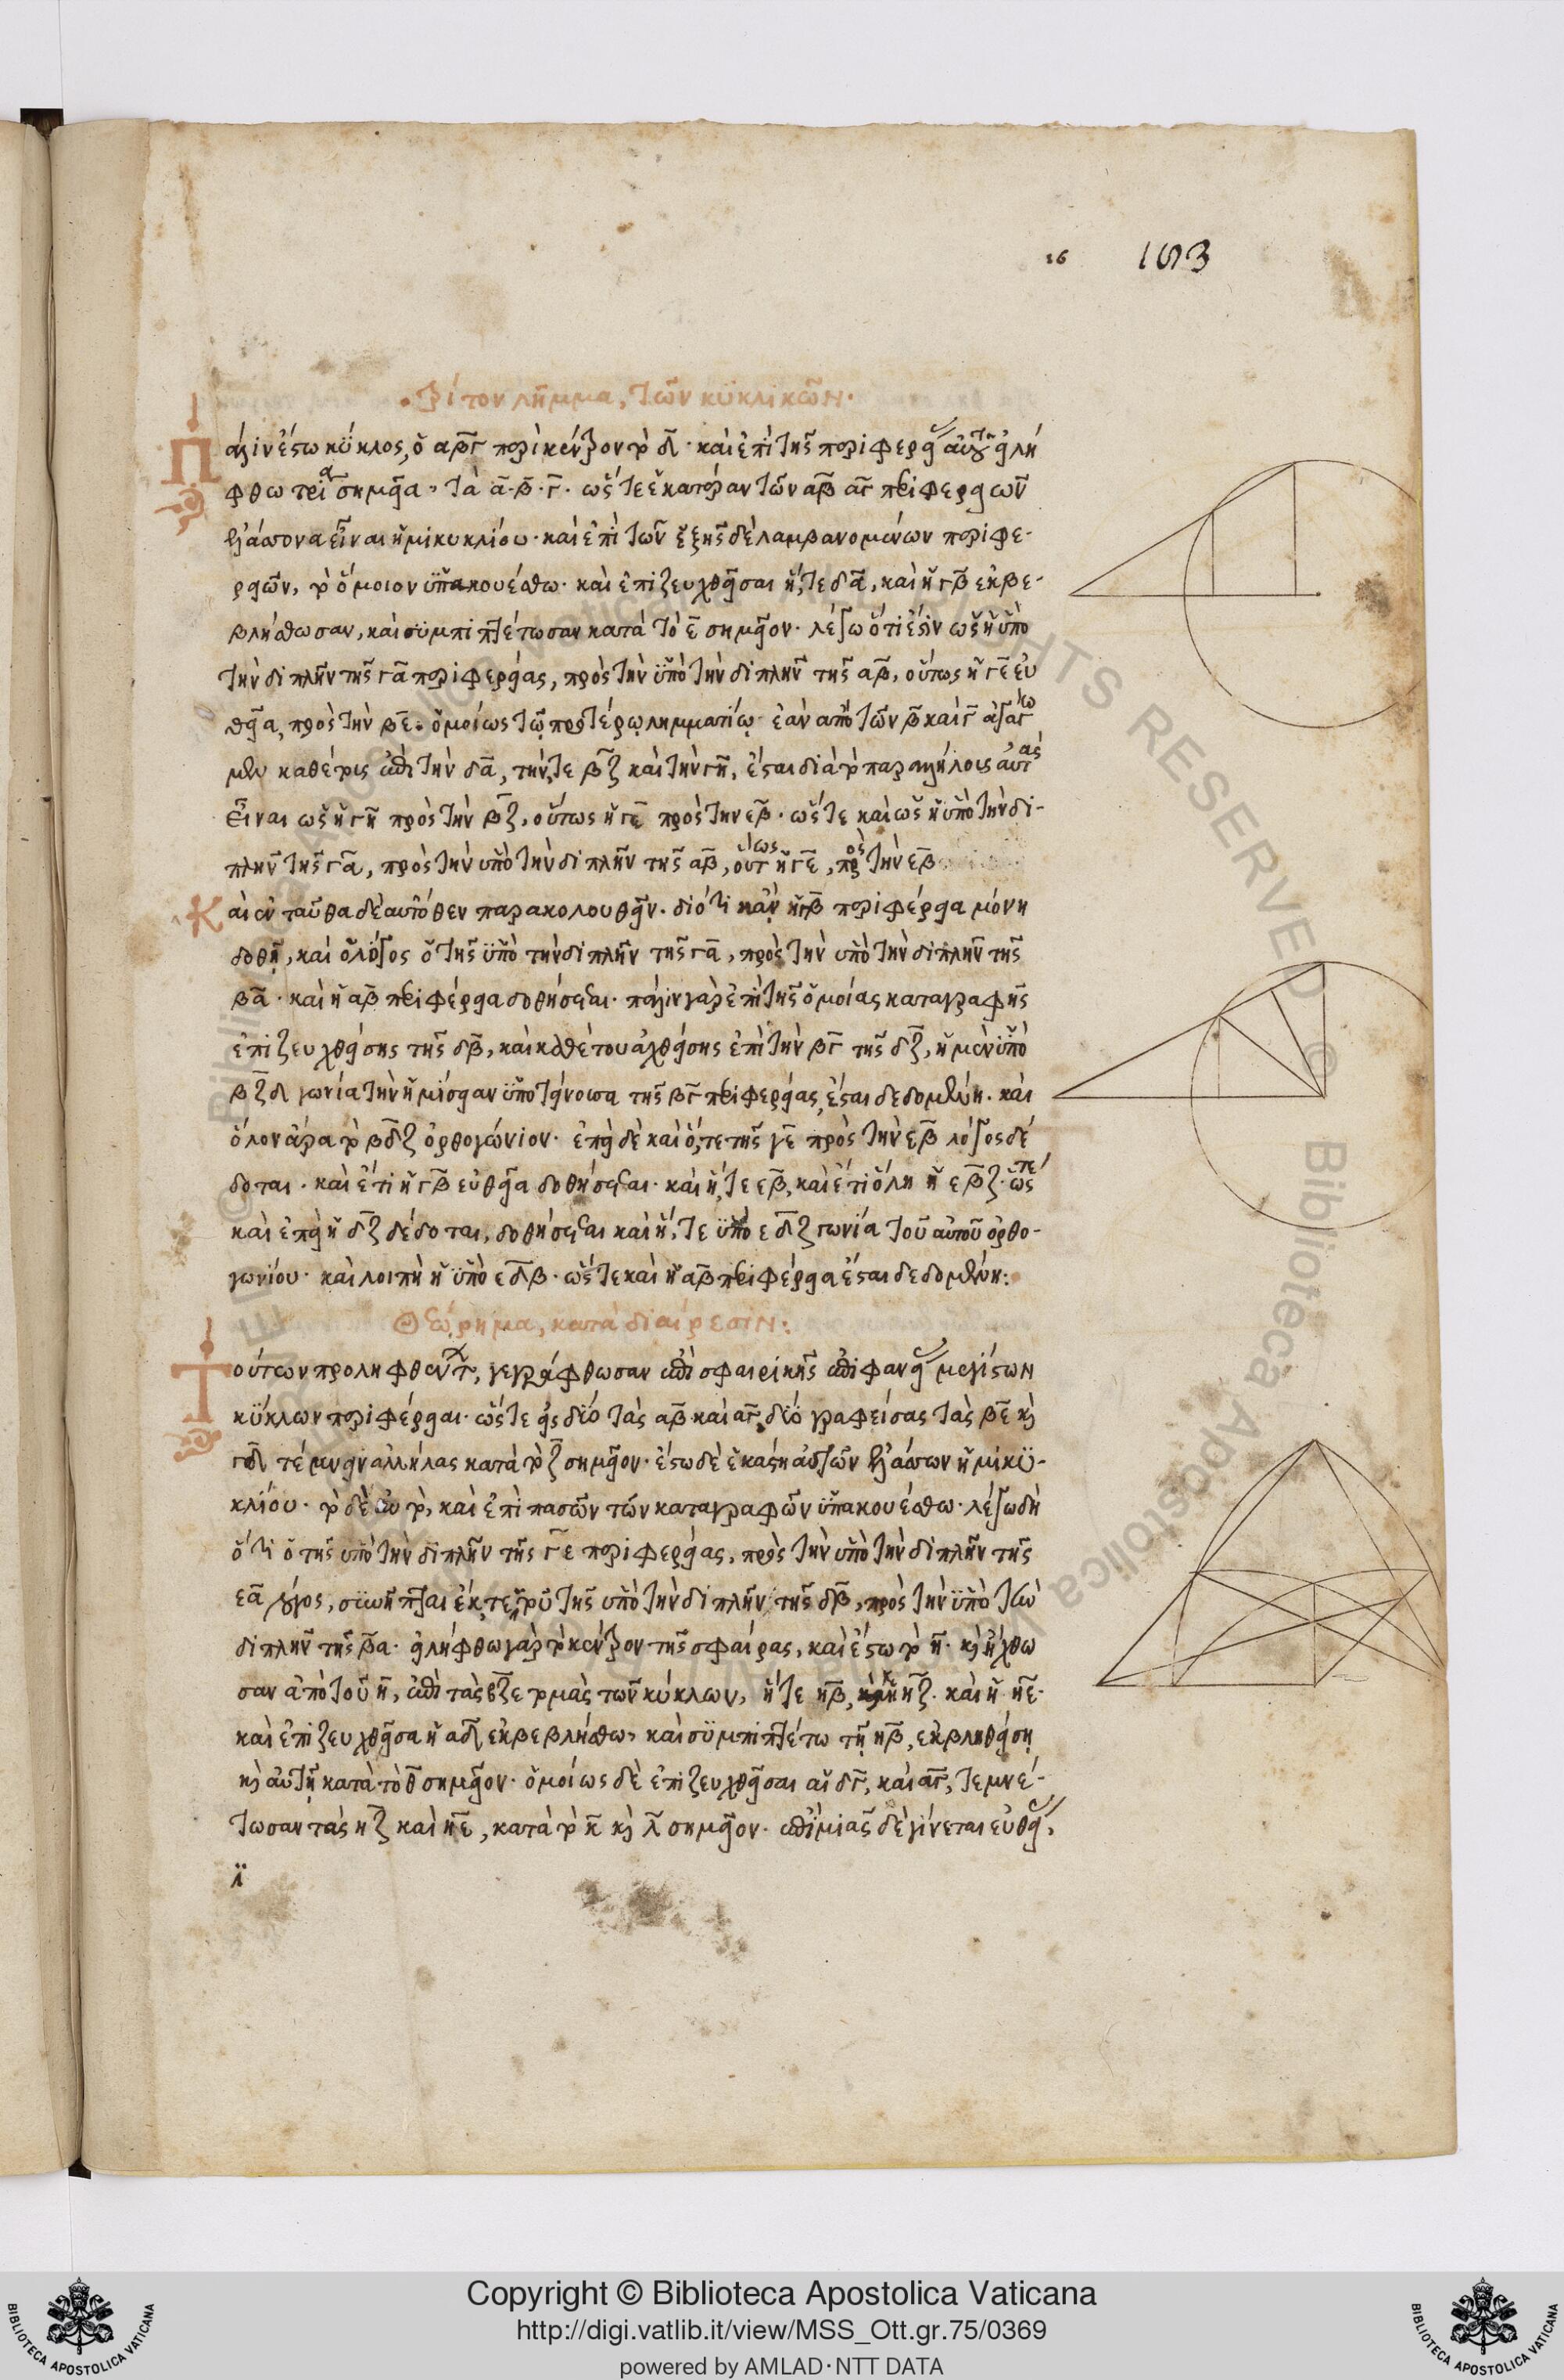 ιϛ 183
τρίτον λῆμμα, τῶν κυκλικῶν·
Πάλιν ἔστω κύκλος, ὁ αβγ περὶ κέντρον τὸ δ· καὶ ἐπὶ τῆς περιφερείας αὐτοῦ εἰλή
φθω τρία σημεῖα, τὰ α· β· γ· ὥστε ἑκατέραν τῶν αβ αγ περιφερειῶν
ἐλάσσονα εἶναι ἡμικυκλίου· καὶ ἐπὶ τῶν ἑξῆς δὲ λαμβανομένων περιφε-
ρειῶν, τὸ ὅμοιον ὑπακουέσθω· καὶ ἐπιζευχθεῖσαι ἥ τε δα, καὶ ἡ γβ ἐκβε-
βλήσθωσαν, καὶ συμπιπτέτωσαν κατὰ τὸ ε σημεῖον· λέγω ὅτι ἐστὶν ὡς ἡ ὑπὸ
τὴν διπλῆν τῆς γα περιφερείας, πρὸς τὴν ὑπὸ τὴν διπλῆν τῆς αβ, οὕτως ἡ γε εὐ
θεῖα, πρὸς τὴν βε· ὁμοίως τῷ προτέρῳ λημματίῳ· ἐὰν ἀπὸ τῶν β καὶ γ ἀγάγω
μεν καθέτους ἐπὶ τὴν δα, τήν τε βζ καὶ τὴν γη, ἔσται διὰ τὸ παραλλήλους αὐτὰς
εἶναι ὡς ἡ γη πρὸς τὴν βζ, οὕτως ἡ γε πρὸς τὴν εβ· ὥστε καὶ ὡς ἡ ὑπὸ τὴν δι-
πλῆν τῆς γα, πρὸς τὴν ὑπὸ τὴν διπλῆν τῆς αβ, οὕτως ἡ γε, πρὸς τὴν εβ
Καὶ ἐνταῦθα δὲ αὐτόθεν παρακολουθεῖν· διότι κἂν ἡ γβ περιφέρεια μόνη
δοθῇ, καὶ ὁ λόγος ὁ τῆς ὑπὸ τὴν διπλῆν τῆς γα, πρὸς τὴν ὑπὸ τὴν διπλῆν τῆς
βα· καὶ ἡ αβ περιφέρεια δοθήσεται· πάλιν γὰρ ἐπὶ τῆς ὁμοίας καταγραφῆς
ἐπιζευχθείσης τῆς δβ, καὶ καθέτου ἀχθείσης ἐπὶ τὴν βγ τῆς δζ, ἡ μὲν ὑπὸ
βζδ γωνία τὴν ἡμίσειαν ὑποτείνουσα τῆς βγ περιφερείας, ἔσται δεδομένη· καὶ
ὅλον ἄρα τὸ βδζ ὀρθογώνιον· ἐπεὶ δὲ καὶ ὅ τε τῆς γε πρὸς τὴν εβ λόγος δέ
δοται· καὶ ἔτι ἡ γβ εὐθεῖα δοθήσεται· καὶ ἥ τε εβ, καὶ ἔτι ὅλη ἡ εβζ· ὥστε
καὶ ἐπεὶ ἡ δζ δέδοται, δοθήσεται καὶ ἥ τε ὑπὸ εδζ γωνία τοῦ αὐτοῦ ὀρθο-
γωνίου· καὶ λοιπὴ ἡ ὑπὸ εδβ· ὥστε καὶ ἡ αβ περιφέρεια ἔσται δεδομένη:
Θεώρημα, κατὰ διαίρεσιν:
Τούτων προληφθέντων, γεγράφθωσαν ἐπὶ σφαιρικῆς ἐπιφανείας μεγίστων
κύκλων περιφέρειαι· ὥστε εἰς δύο τὰς αβ καὶ αγ, δύο γραφείσας τὰς βε καὶ
γδ τέμνειν ἀλλήλας κατὰ τὸ ζ σημεῖον· ἔστω δὲ ἑκάστη αὐτῶν ἐλάσσων ἡμικυ-
κλίου· τὸ δὲ αὐτὸ, καὶ ἐπὶ πασῶν τῶν καταγραφῶν ὑπακουέσθω· λέγω δὴ
ὅτι ὁ τῆς ὑπὸ τὴν διπλῆν τῆς γε περιφερείας, πρὸς τὴν ὑπὸ τὴν διπλῆν τῆς
εα λόγος, συνῆπται ἔκ τε τοῦ τῆς ὑπὸ τὴν διπλῆν τῆς δβ, πρὸς τὴν ὑπὸ τὴν
διπλῆν τῆς βα· εἰλήφθω γὰρ τὸ κέντρον τῆς σφαίρας, καὶ ἔστω τὸ η· καὶ ἤχθω
σαν ἀπὸ τοῦ η, ἐπὶ τὰς βζε τομὰς τῶν κύκλων, ἥ τε ηβ, καὶ ἡ ηζ· καὶ ἡ ηε·
καὶ ἐπιζευχθεῖσα ἡ αδ ἐκβεβλήσθω, καὶ συμπιπτέτω τῇ ηβ, ἐκβληθείσῃ
καὶ αὐτῇ κατὰ τὸ θ σημεῖον· ὁμοίως δὲ ἐπιζευχθεῖσαι αἱ δγ, καὶ αγ, τεμνέ-
τωσαν τὰς ηζ καὶ ηε, κατὰ τὸ κ καὶ λ σημεῖον· ἐπὶ μιᾶς δὲ γίνεται εὐθείας,
Copyright © Biblioteca Apostolica Vaticana
http://digi.vatlib.it/view/MSS_Ott.gr.75/0369
powered by AMLAD·NTT DATA
BIBLIOTECA APOSTOLICA VATICANA
BIBLIOTECA APOSTOLICA VATICANA